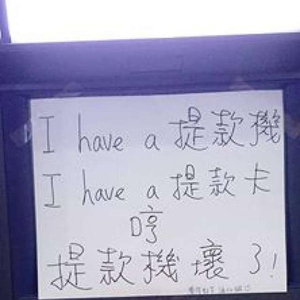 I have a 提款機
I have a 提款卡
哼
提款機壞了!